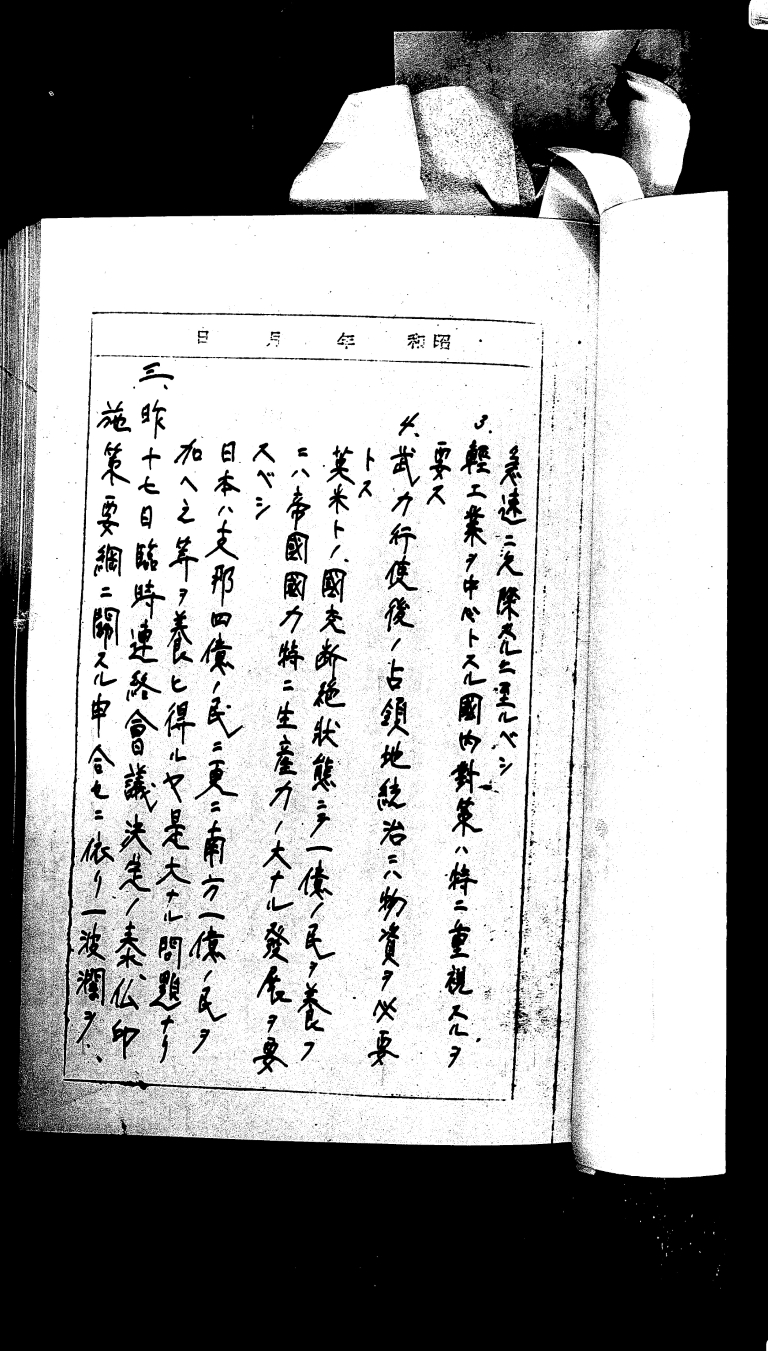 昭和　年　月　日
急速ニ欠除スルニ至ルベシ
3、軽工業ヲ中心トスル國内對策ハ特ニ重視スルヲ
要ス
4、武力行使後ノ占領地統治ニハ物資ヲ必要
トス
英米トノ國交断絶状態ニテ一億ノ民ヲ養フ
ニハ帝國國力特ニ生産力ノ大ナル發展ヲ要
スベシ
日本ハ支那四億ノ民ニ更ニ南方一億ノ民ヲ
加ヘ之等ヲ養ヒ得ルヤ是大ナル問題ナリ
三、昨十七日臨時連絡會議決定ノ泰、仏印
施策要綱ニ關スル申合セニ依リ一波瀾ヲ